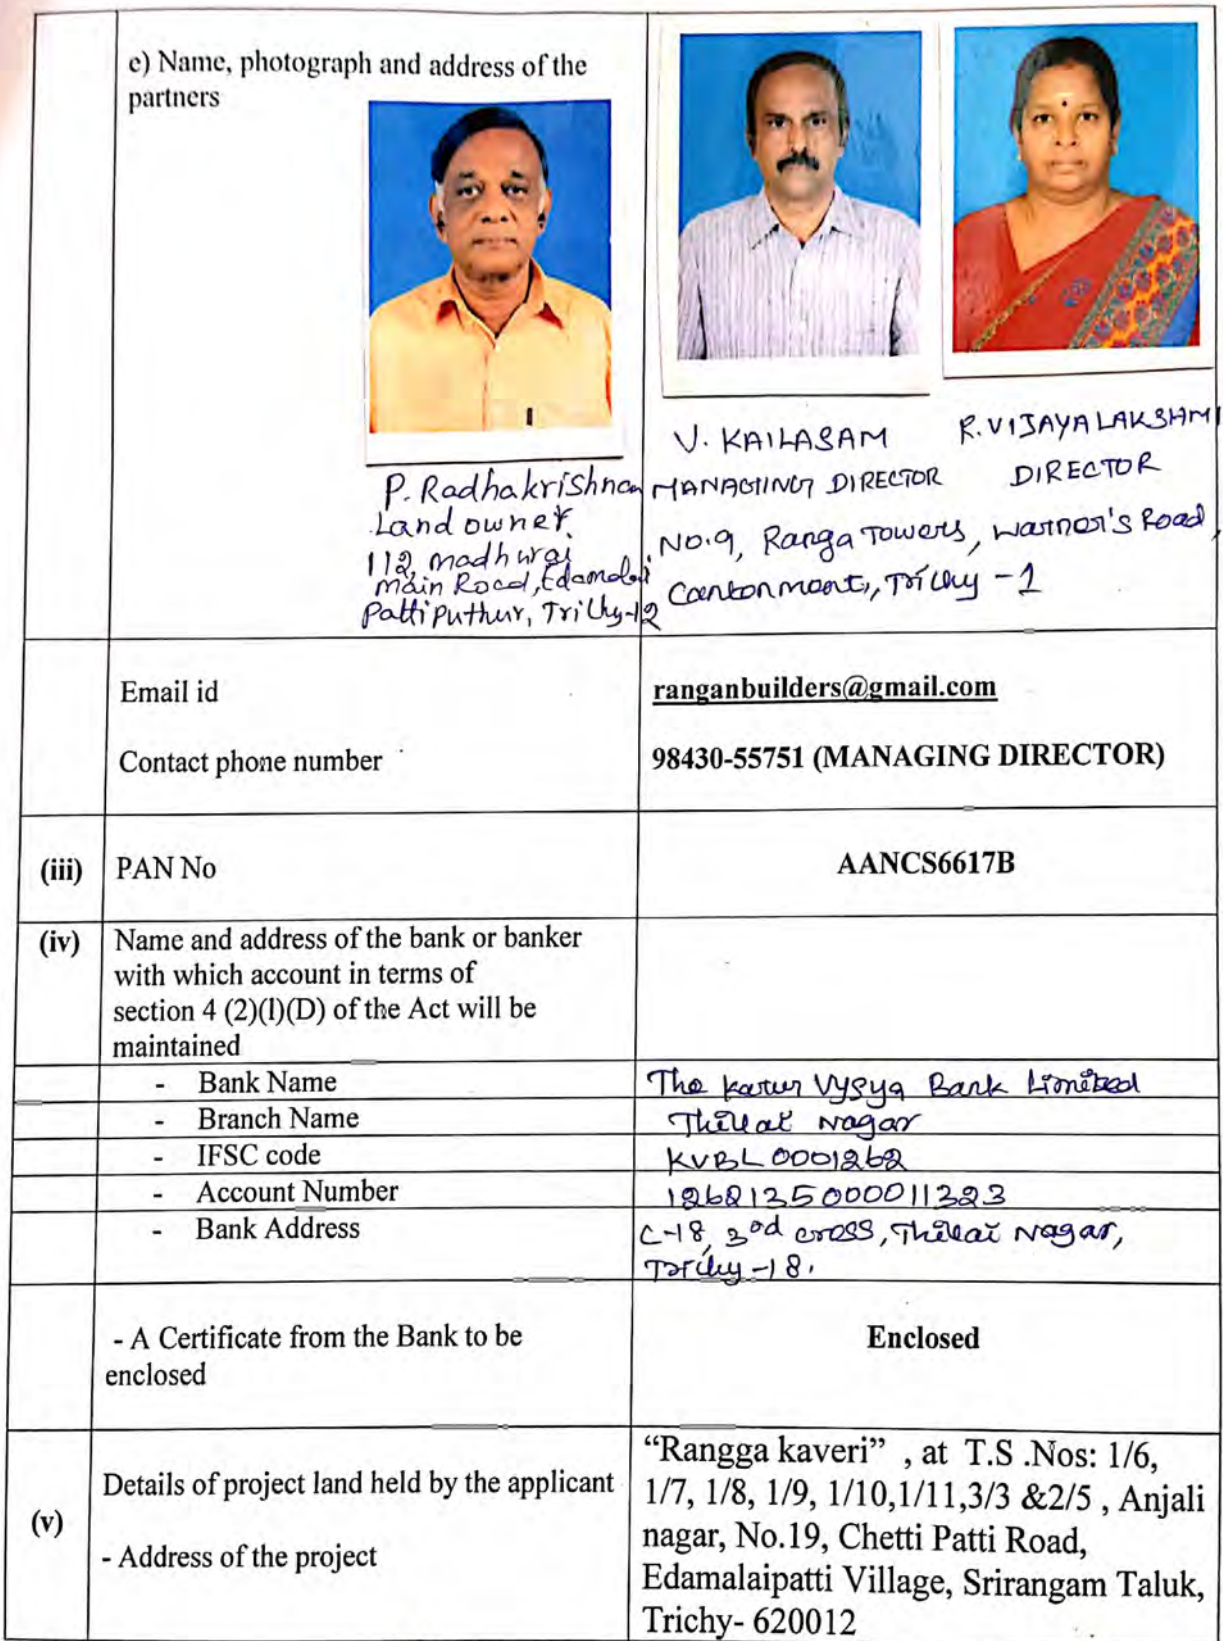 e) Name, photograph and address of the
partners
P. Radhakrishnan
Land owner,
112, madhurai
main Road, Edamalai
Patti Puthur, Trichy-12
V. KAILASAM
MANAGING DIRECTOR
R. VIJAYALAKSHMI
DIRECTOR
No.9, Ranga Towers, Warner's Road,
Cantonment, Trichy - 1
Email id
ranganbuilders@gmail.com
Contact phone number
98430-55751 (MANAGING DIRECTOR)
(iii) PAN No
AANCS6617B
(iv) Name and address of the bank or banker
with which account in terms of
section 4 (2)(l)(D) of the Act will be
maintained
- Bank Name
The Karur Vysya Bank Limited
- Branch Name
Thillai Nagar
- IFSC code
KVBL0001262
- Account Number
1262135000011323
- Bank Address
C-18, 3rd cross, Thillai Nagar,
Trichy-18.
- A Certificate from the Bank to be
enclosed
Enclosed
(v)
Details of project land held by the applicant
- Address of the project
“Rangga kaveri” , at T.S .Nos: 1/6,
1/7, 1/8, 1/9, 1/10,1/11,3/3 &2/5 , Anjali
nagar, No.19, Chetti Patti Road,
Edamalaipatti Village, Srirangam Taluk,
Trichy- 620012